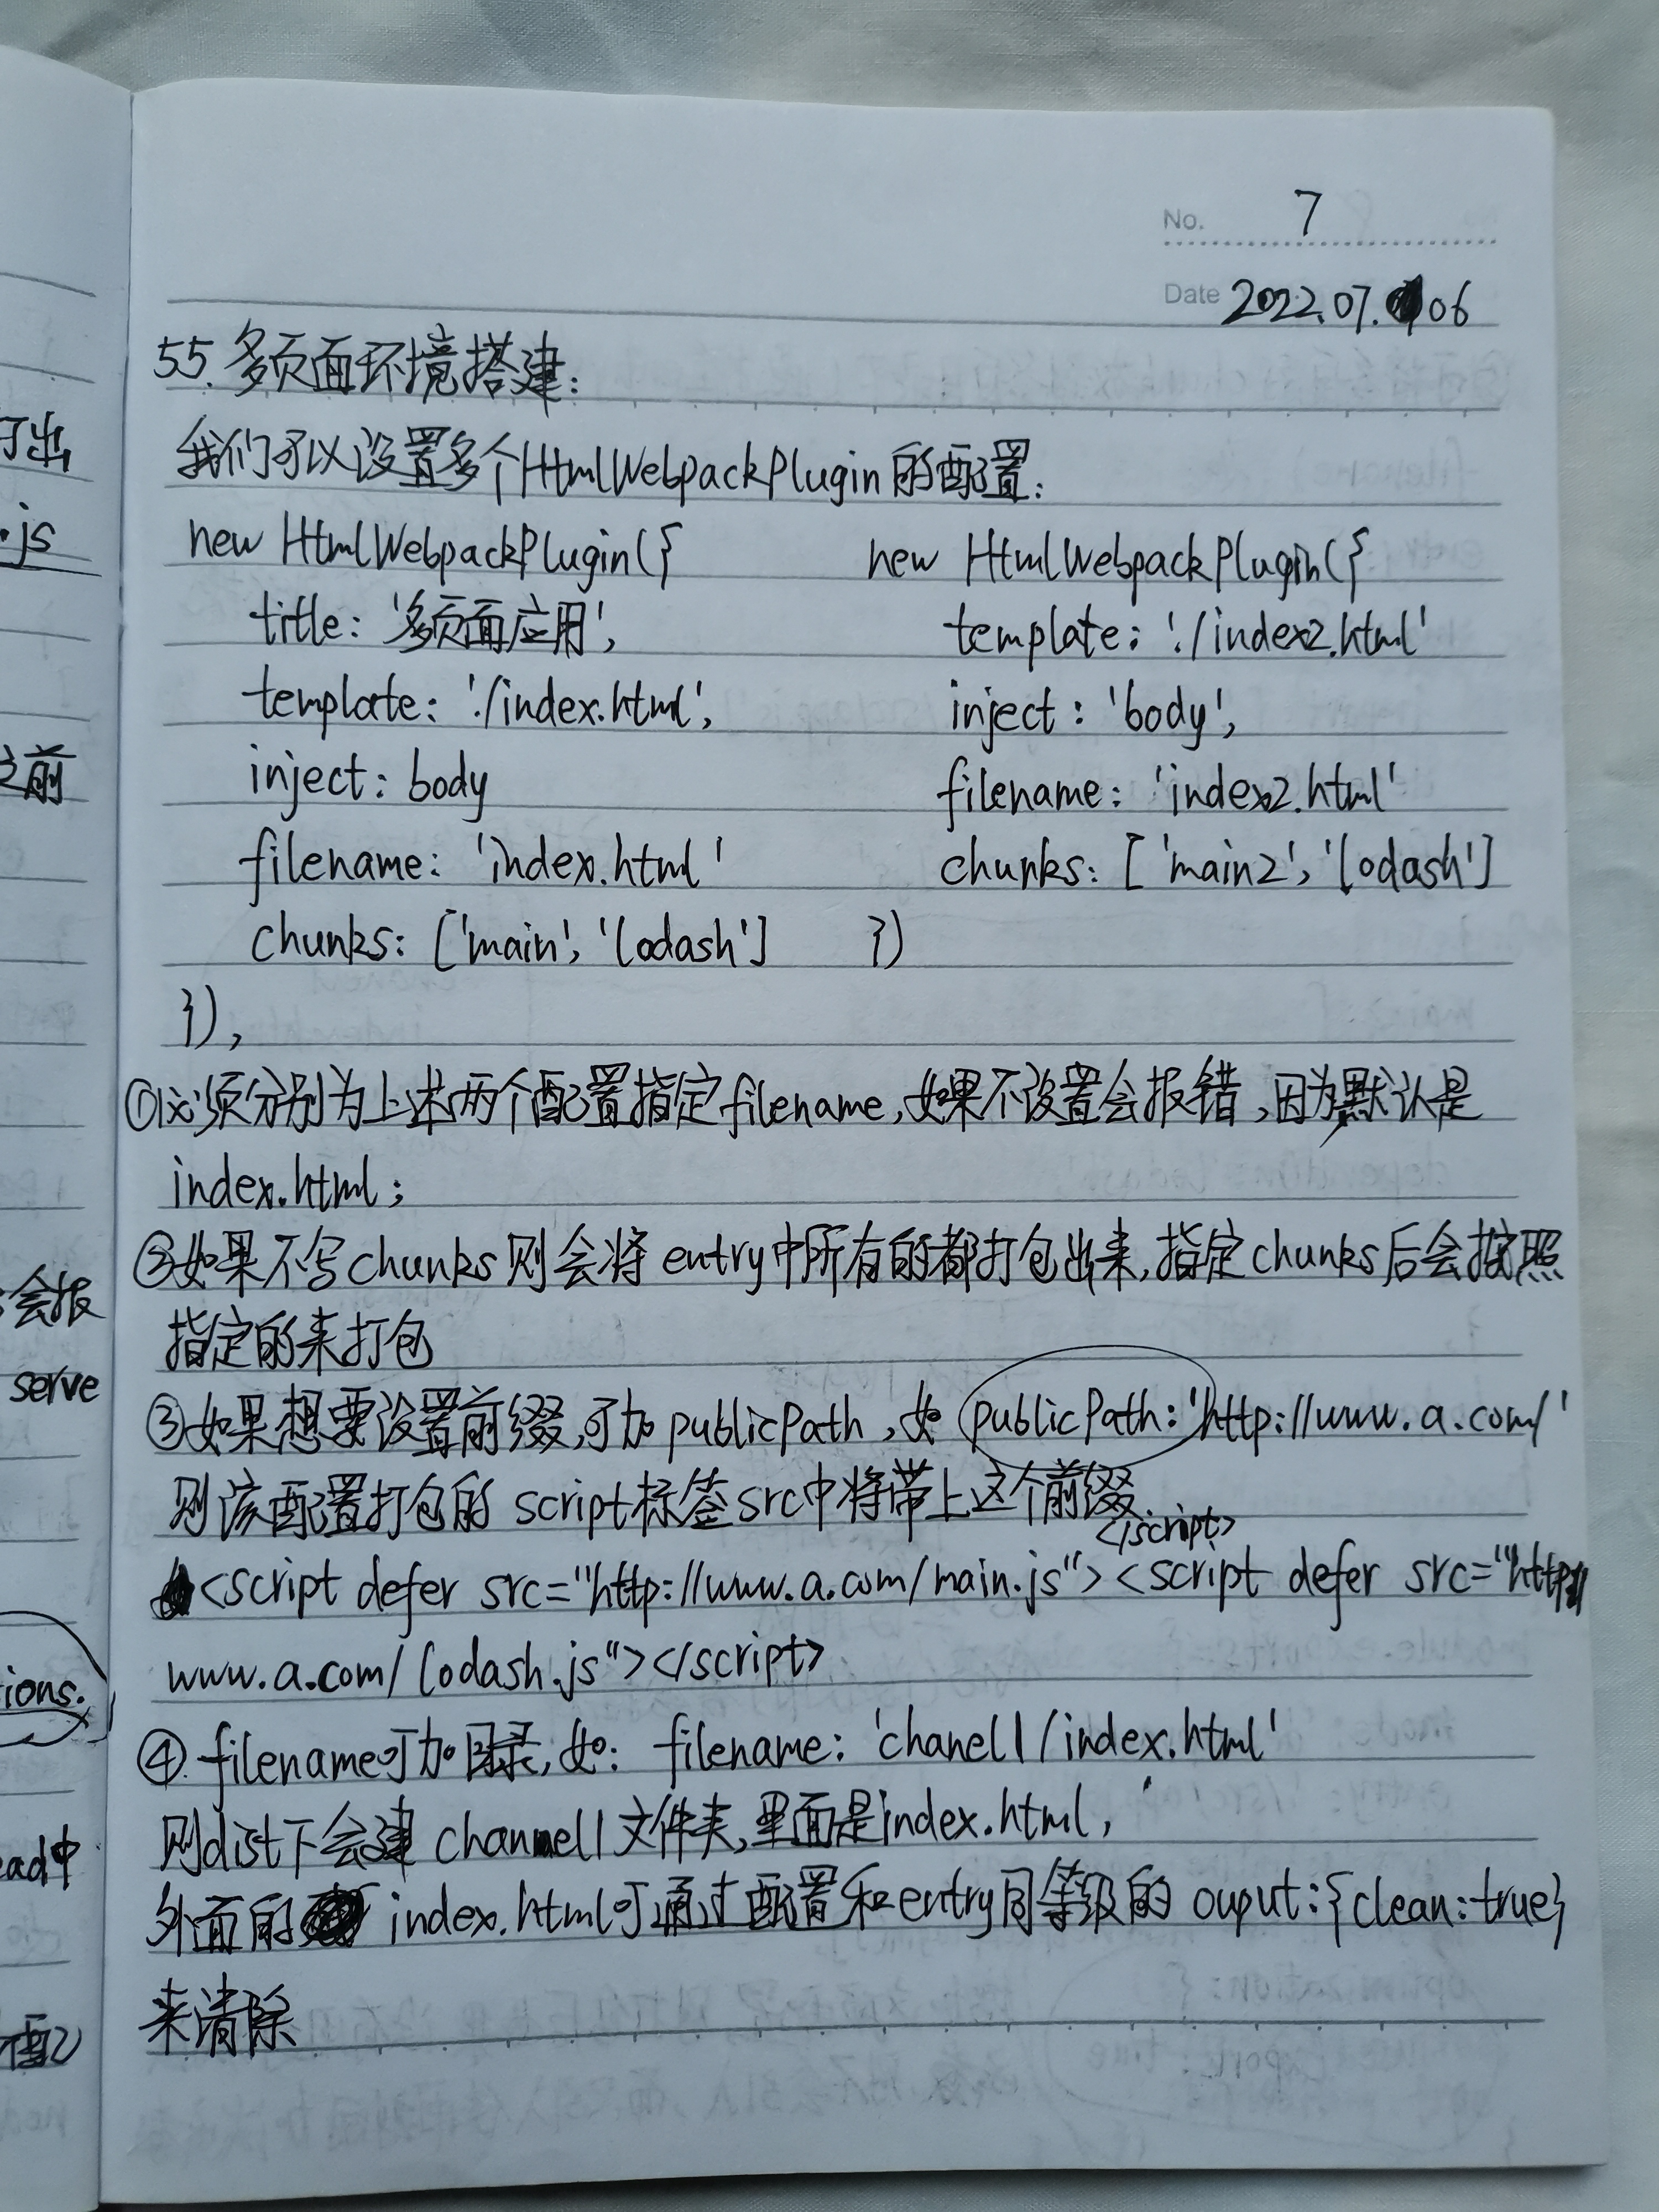 No. 7
Date 2022.07.06
55.多页面环境搭建:
我们可以设置多个HtmlWebpackPlugin的配置:
new HtmlWebpackPlugin({
title: '多页面应用',
template: './index.html',
inject: body
filename: 'index.html'
chunks: ['main', 'lodash']
}),
new HtmlWebpackPlugin({
template: './index2.html'
inject: 'body',
filename: 'index2.html'
chunks: ['main2', 'lodash']
})
①必须分别为上述两个配置指定filename,如果不设置会报错,因为默认是
index.html;
②如果不写chunks则会将entry中所有的都打包出来,指定chunks后会按照
指定的来打包
③如果想要设置前缀,可加publicPath,如 publicPath:'http://www.a.com/'
则该配置打包的script标签src中将带上这个前缀
<script defer src="http://www.a.com/main.js"></script><script defer src="http://
www.a.com/lodash.js"></script>
④filename可加目录,如: filename: 'chanel1/index.html'
则dist下会建channel1文件夹,里面是index.html,
外面的index.html可通过配置和entry同等级的 ouput:{clean:true}
来清除
打出
.js
之前
会报
serve
ions.
ead中
配